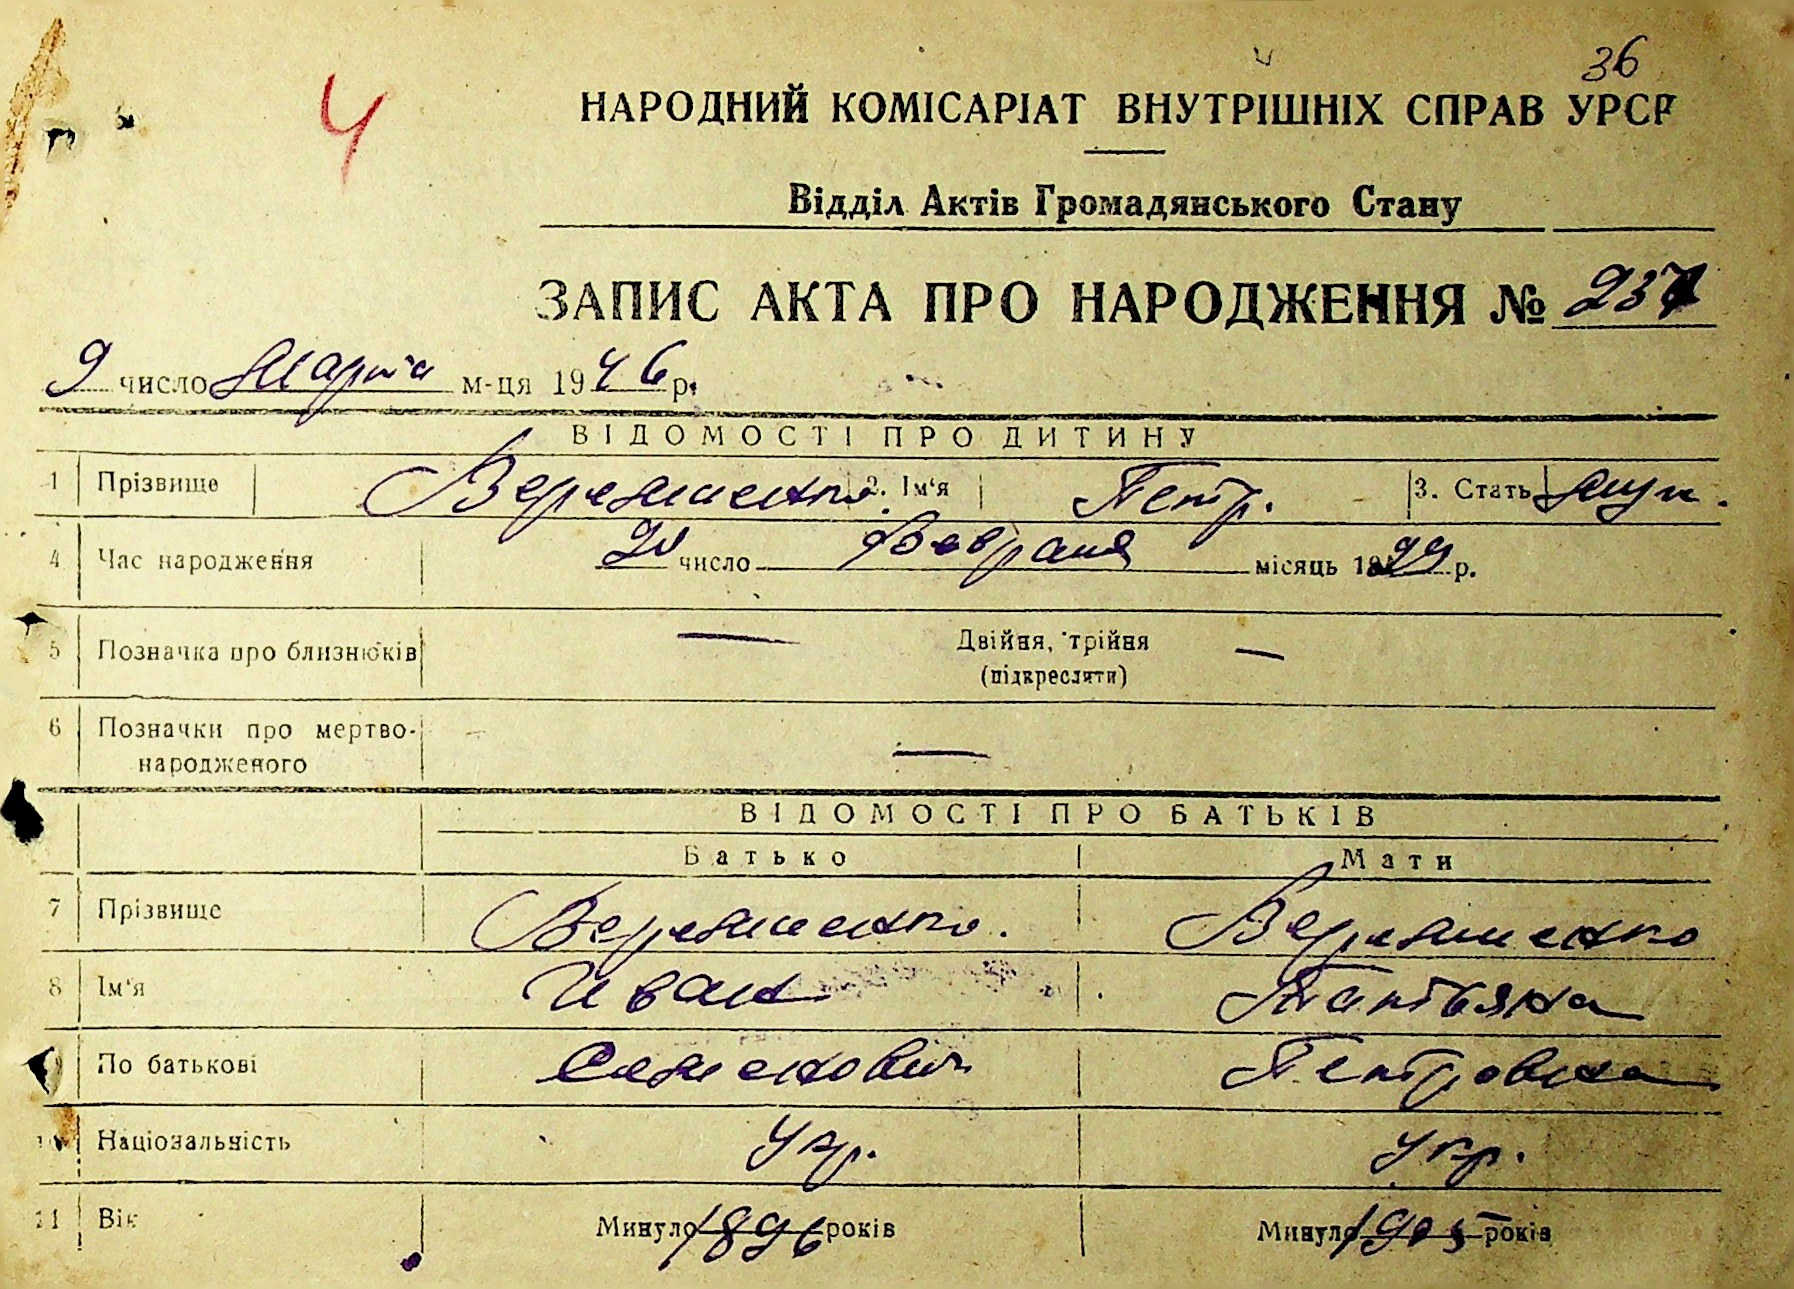 36
4
НАРОДНИЙ КОМІСАРІАТ ВНУТРІШНІХ СПРАВ УРСР
Відділ Актів Громадянського Стану
ЗАПИС АКТА ПРО НАРОДЖЕННЯ № 237
9 число марта м-ця 1946 р.
ВІДОМОСТІ ПРО ДИТИНУ
1 Прізвище Веремиенко 2. Ім'я Петр. 3. Стать муж.
4 Час народження число Февраля місяць р.
5 Позначка про близнюків — Двійня, трійня —
(підкреслити)
6 Позначки про мертво-
народженого —
ВІДОМОСТІ ПРО БАТЬКІВ
Батько Мати
7 Прізвище Веремиенко. Веремиенко
8 Ім'я Иван Татьяна
По батькові Семенович Петровна
10 Національність Укр. Укр.
11 Вік Минуло 1896 років Минуло 1905 років